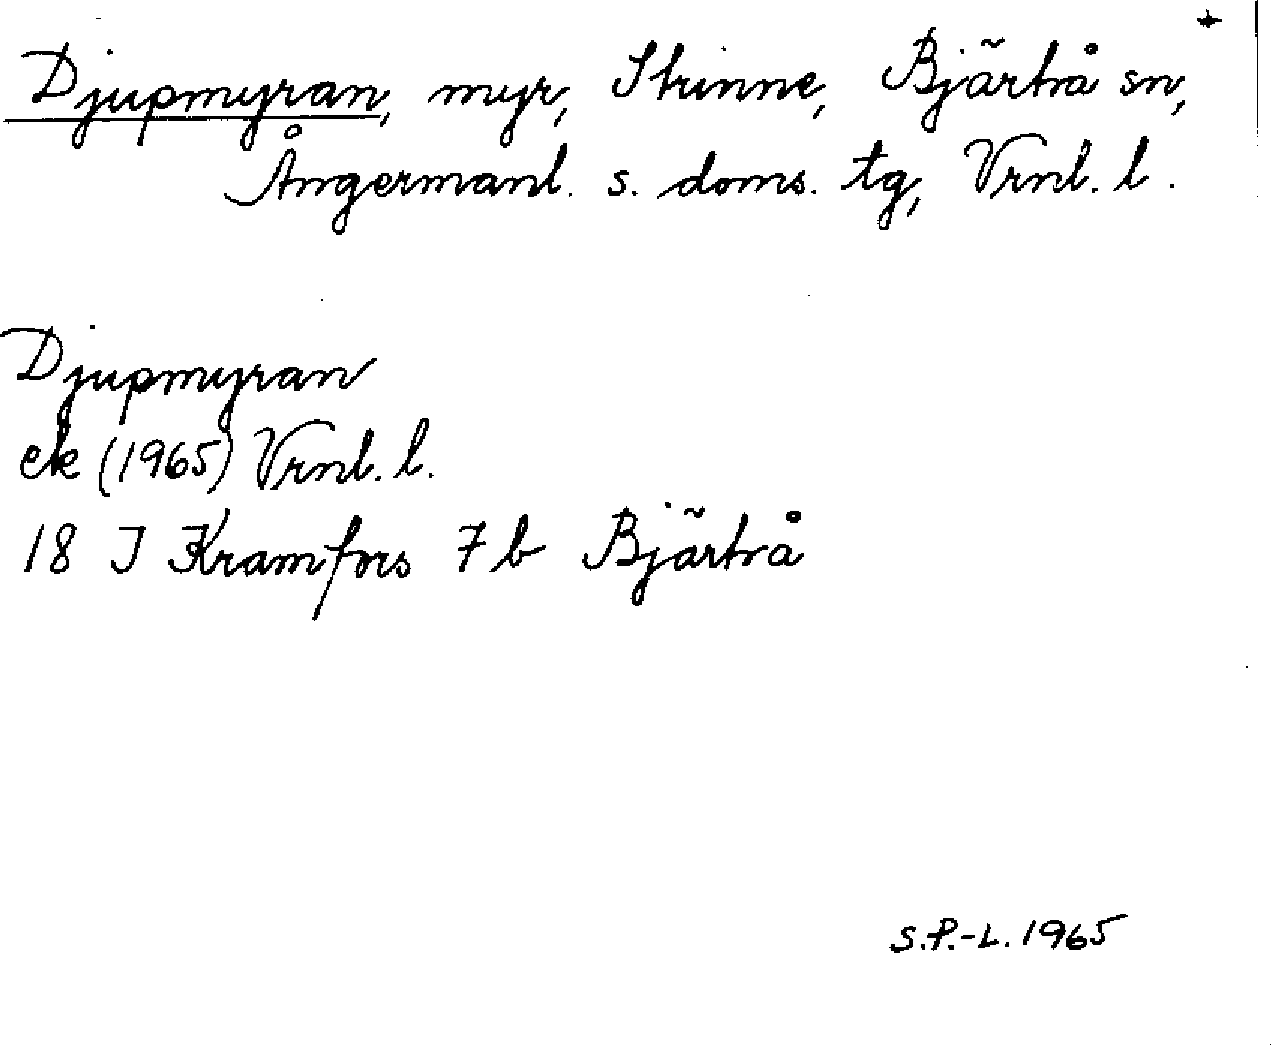 Djupmyran, myr, Strinne, Bjärtrå sn,
Ångermanl. s. doms. tg, Vrnl. l.
Djupmyran
ek (1965) Vrnl. l.
18 J Kramfors 7 b Bjärtrå
S.P.-L. 1965